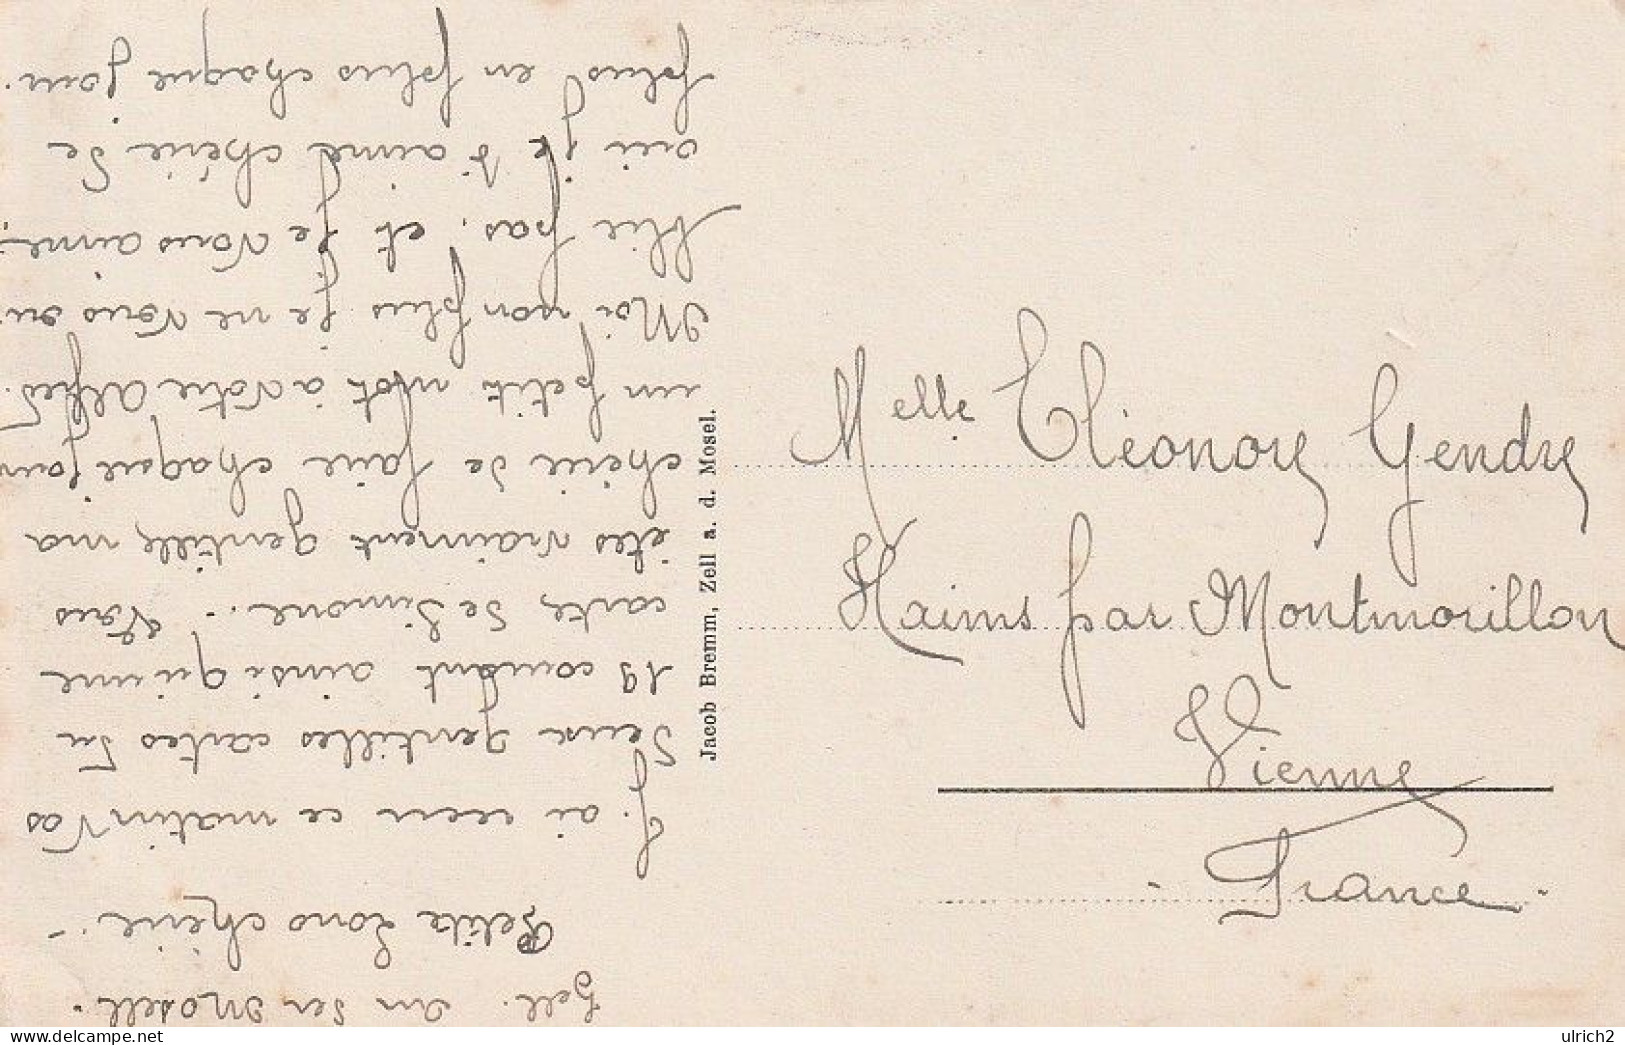 Zell. an der Mosell.
Petite Nono chérie. -
J. ai reçu ce matin Vos
deux gentilles cartes du
19 courant ainsi qu'une
carte, de Simone. - Vous
êtes vraiment gentille, ma
chérie de faire chaque jour
un petit mot à Votre Alfred.
Moi non plus je ne Vous ou-
blie pas, et je Vous aime;
oui je t'aime chérie de
plus en plus chaque jour.
Jacob Bremm, Zell a. d. Mosel.
Melle Eléonore Gendre
Hains par Montmorillon
Vienne
France
ulrich2